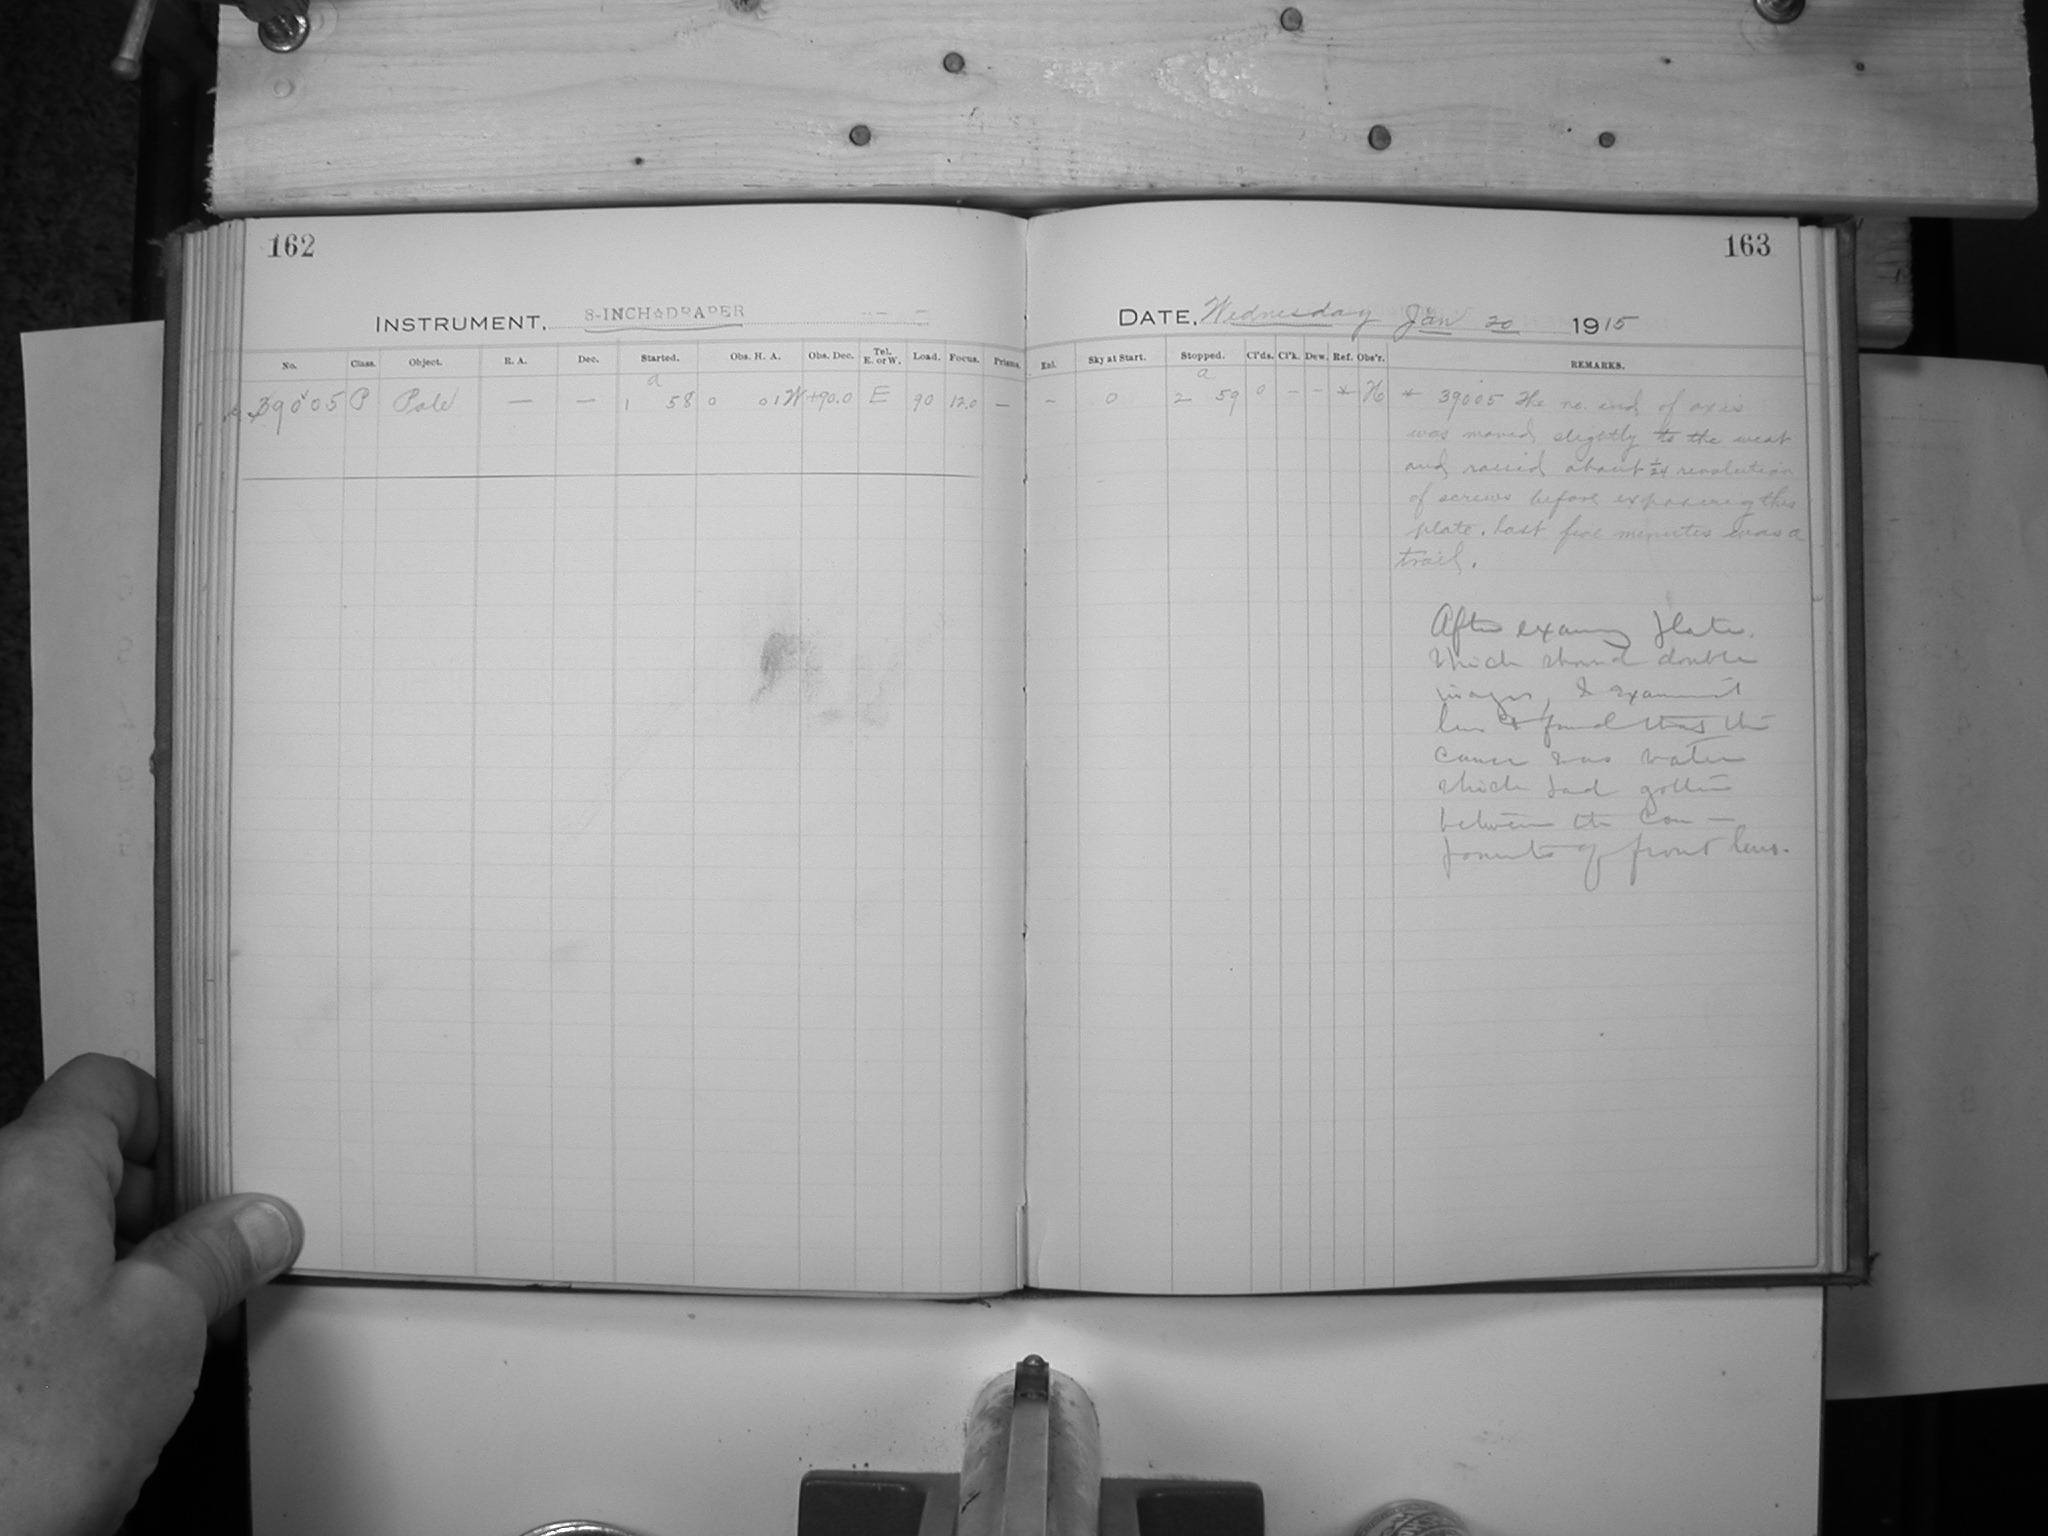 162
163
INSTRUMENT. 8-INCH DRAPER
DATE. Wednesday Jan 20 1915
No. Class. Object. R. A. Dec. Started. Obs. H. A. Obs. Dec. Tel. E. or W. Load. Focus. Prisms.
Enl. Sky at Start. Stopped. Cl'ds. Cl'k. Dew. Ref. Obs'r. REMARKS.
39005 P Pole — — a 1 58 0 01W +90.0 E 90 12.0 —
– 0 a 2 59 0 – – * H
* 39005 The no. end of axis
was moved slightly to the west
and raised about 1/24 revolution
of screws before exposing this
plate. Last five minutes was a
trail.
After plate,
which showed double
images, I examined
lens & found that the
cause was water
which had gotten
between the com–
ponents of front lens.